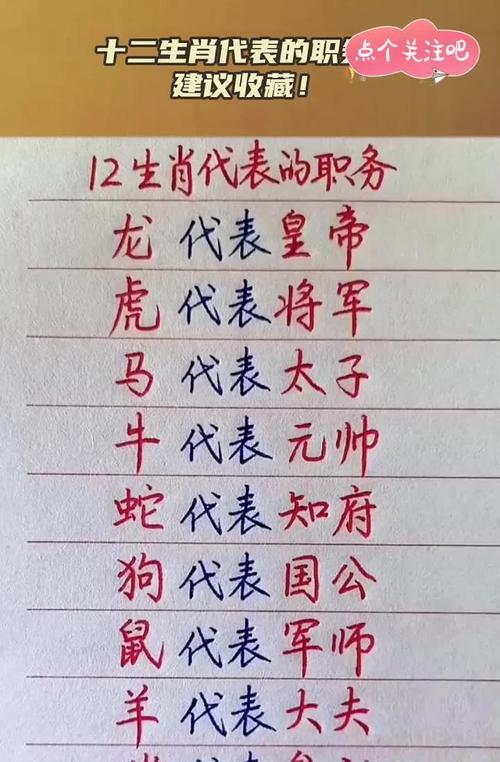 十二生肖代表的职
点个关注吧
建议收藏！
12生肖代表的职务
龙 代表皇帝
虎 代表将军
马 代表太子
牛 代表元帅
蛇 代表知府
狗 代表国公
鼠 代表军师
羊 代表大夫
代表